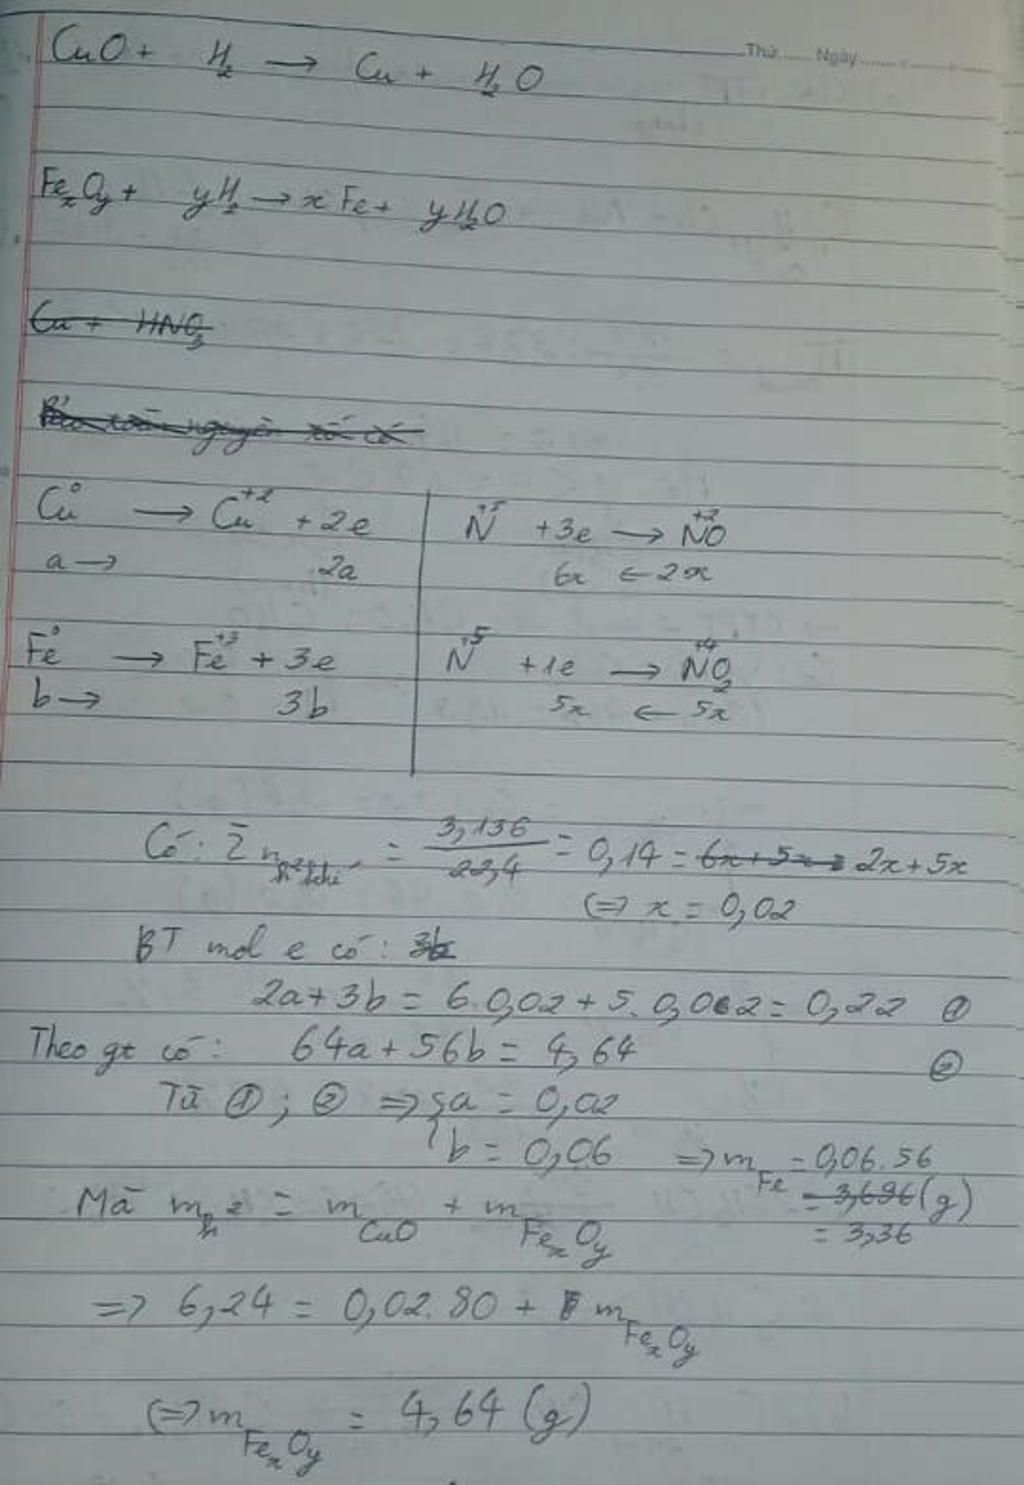 Thứ...... Ngày...................
CuO + H₂ → Cu + H₂O
FeₓOy + yH₂ → xFe + yH₂O
Cu + HNO₃
Cu⁰ → Cu⁺² + 2e | N⁺⁵ + 3e → N⁺²O
a → 2a | 6x ← 2x
Fe⁰ → Fe⁺³ + 3e | N⁺⁵ + 1e → N⁺⁴O₂
b → 3b | 5x ← 5x
Có: Σn h² khí = 3,136/22,4 = 0,14 = 6x + 5x 2x + 5x
(=) x = 0,02
BT mol e có: 3b
2a + 3b = 6.0,02 + 5.0,02 = 0,22 ①
Theo gt có: 64a + 56b = 4,64 ②
Từ ①; ② => { a = 0,02
b = 0,06 => m Fe = 0,06.56
= 3,696 (g)
= 3,36
Mà m h² = m CuO + m FeₓOy
=> 6,24 = 0,02.80 + m FeₓOy
(=) m FeₓOy = 4,64 (g)